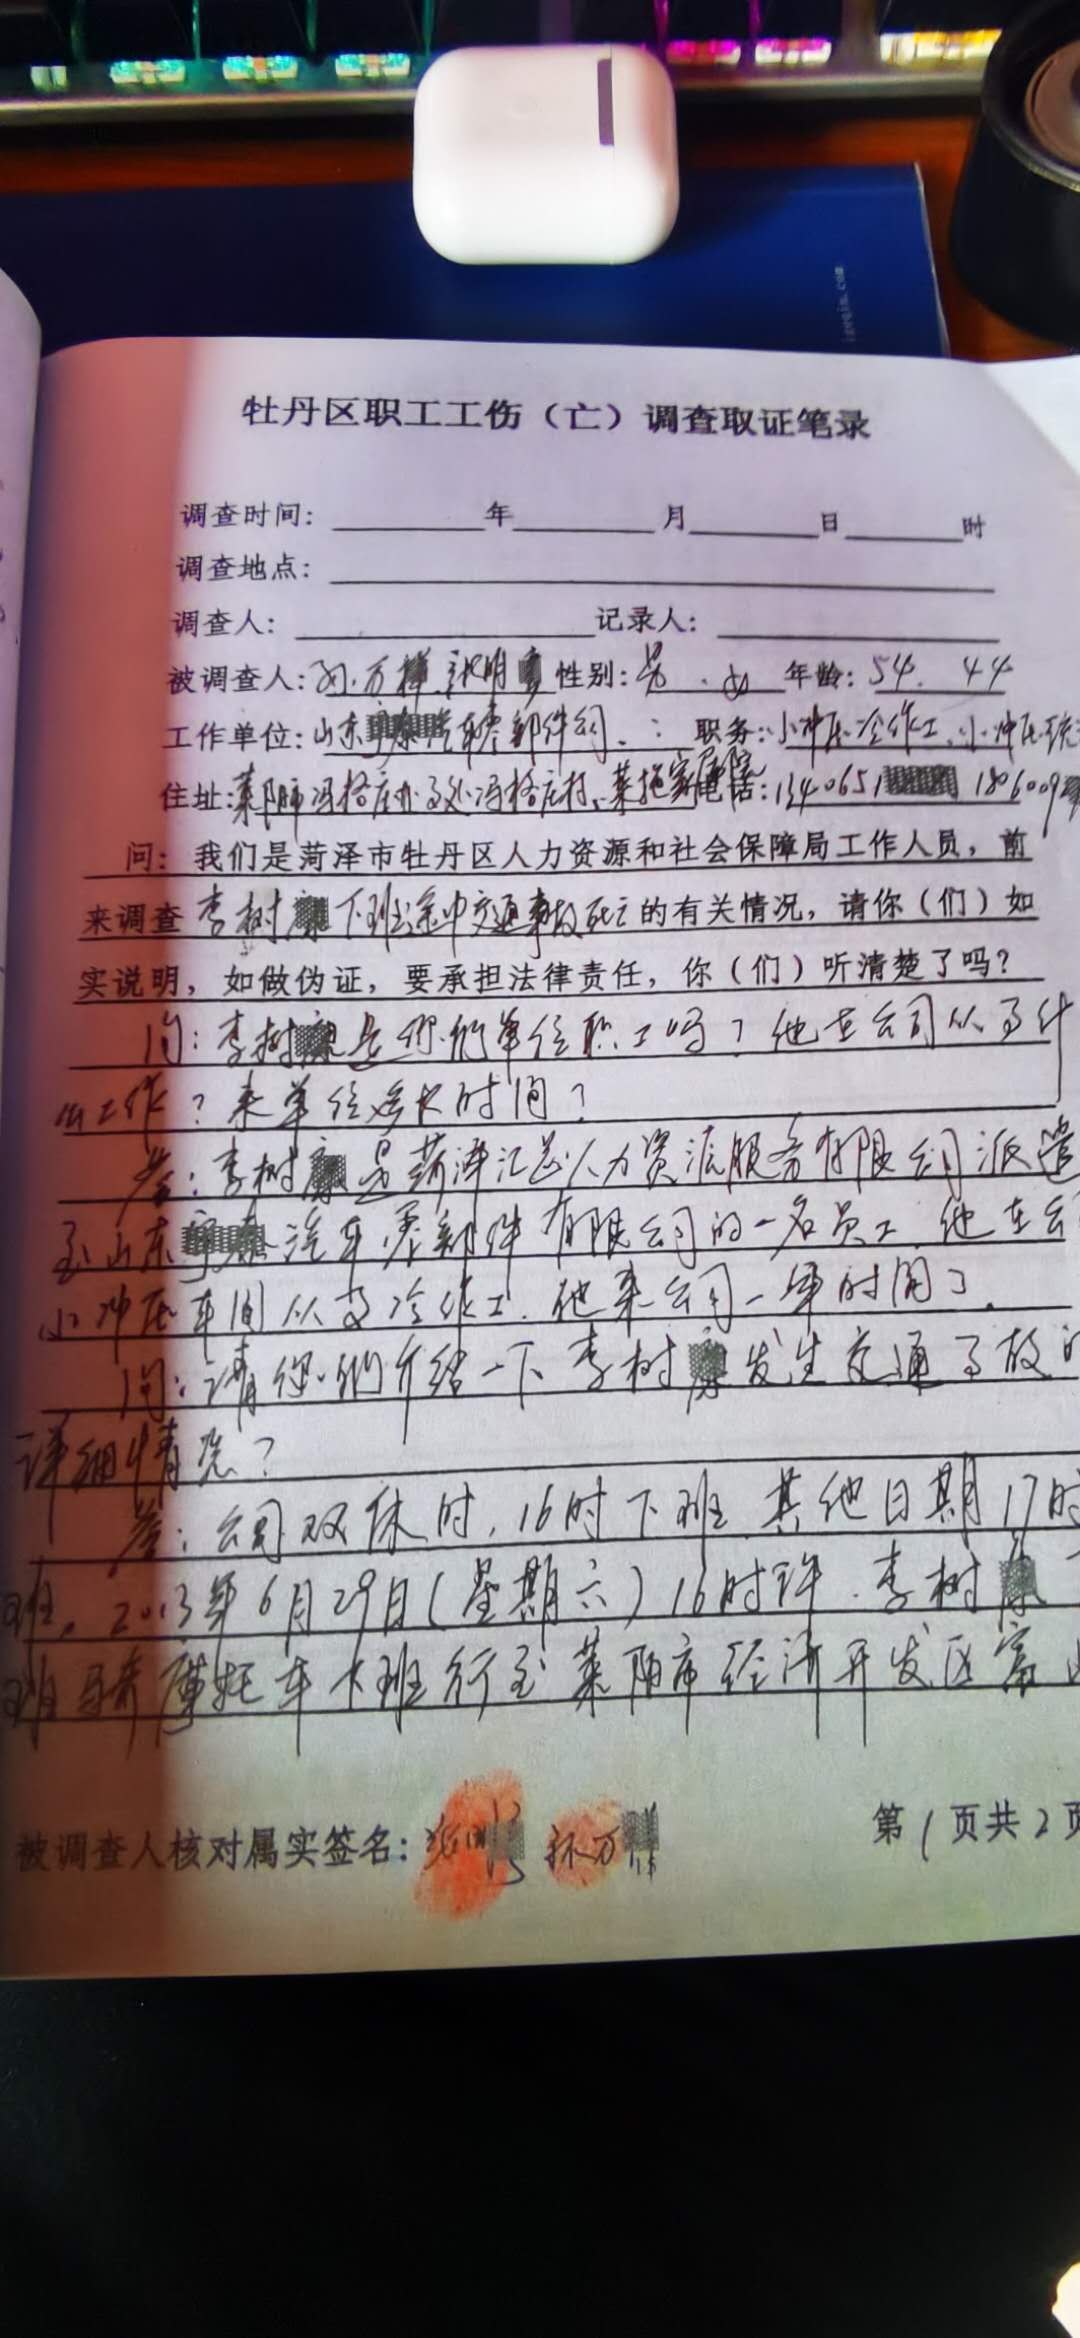 牡丹区职工工伤（亡）调查取证笔录
调查时间：年月日时
调查地点：
调查人：记录人：
被调查人：孙万 张明 性别：男.女 年龄：54. 44
工作单位：山东 汽车零部件公司. 职务：小冲压冷作工、小冲压
住址：莱阳市冯格庄办事处冯格庄村、莱拖家属院 电话：1340651 186009
问：我们是菏泽市牡丹区人力资源和社会保障局工作人员，前
来调查李树 下班途中交通事故死亡的有关情况，请你（们）如
实说明，如做伪证，要承担法律责任，你（们）听清楚了吗？
问：李树 是你们单位职工吗？他在公司从事什
么工作？来单位多长时间？
答：李树 是菏泽汇 人力资源服务有限公司派遣
至山东 汽车零部件有限公司的一名员工.他在公
小冲压车间从事冷作工.他来公司一年时间了.
问：请你们介绍一下李树 发生交通事故的
详细情况？
答：公司双休时，16时下班.其他日期17时
班，2013年6月29日（星期六）16时许.李树
班骑摩托车下班行至莱阳市经济开发区富
被调查人核对属实签名：张明 孙万
第1页共2页